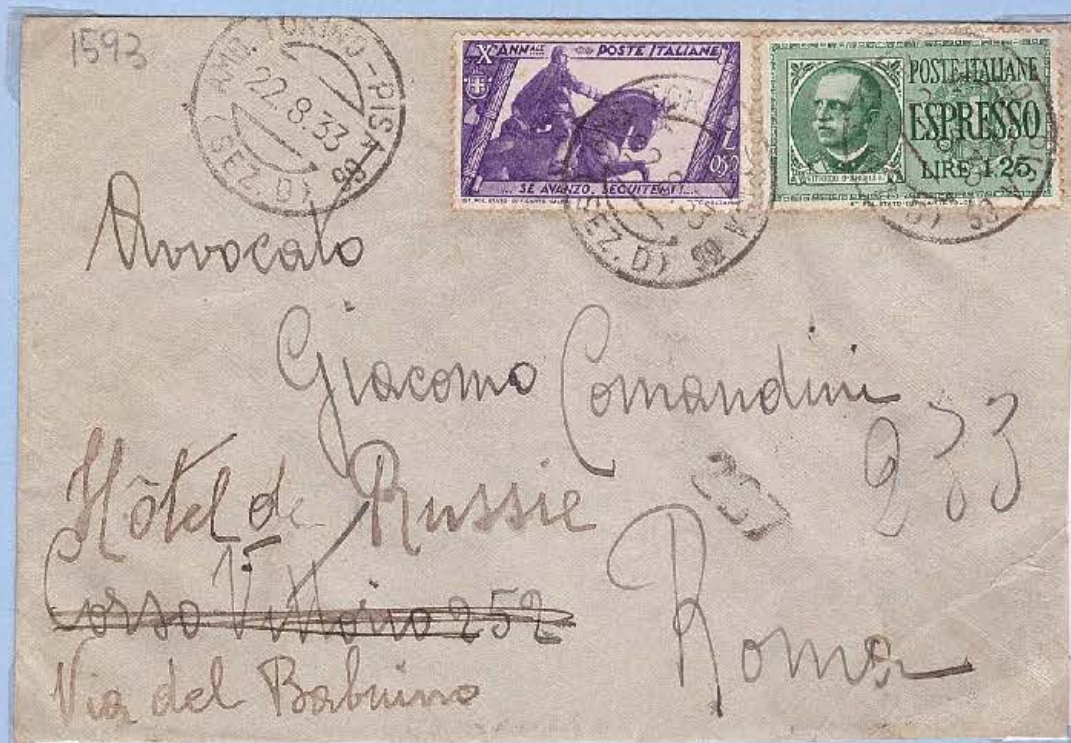 1593
AMB. TORINO-PISA 68
22.8.33
(SEZ. D)
X ANNALE POSTE ITALIANE
L 0,50
SE AVANZO, SEGUITEMI!...
POSTE ITALIANE
ESPRESSO
LIRE 1.25
(SEZ. D)
Avvocato
Giacomo Comandini
233
Hôtel de Russie
Corso Vittorio 252
Roma
Via del Babuino